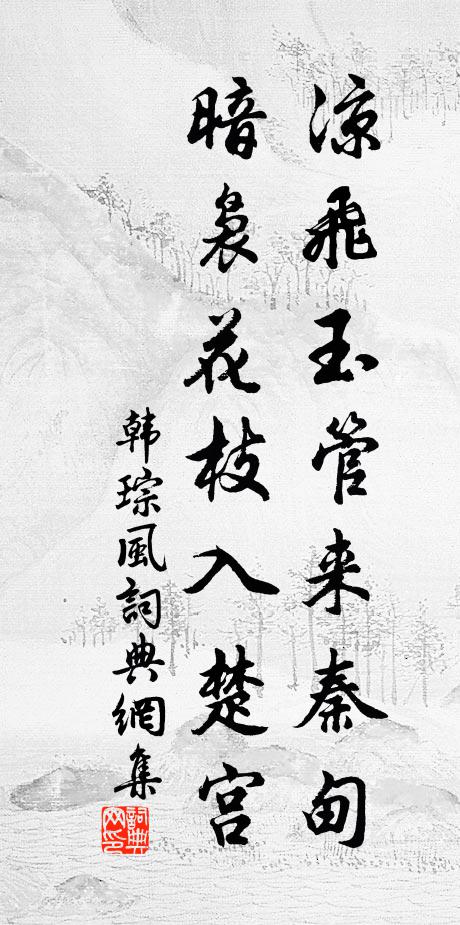 凉飛玉管来秦甸
暗裊花枝入楚宫
韩琮風詞典網集
詞典网印